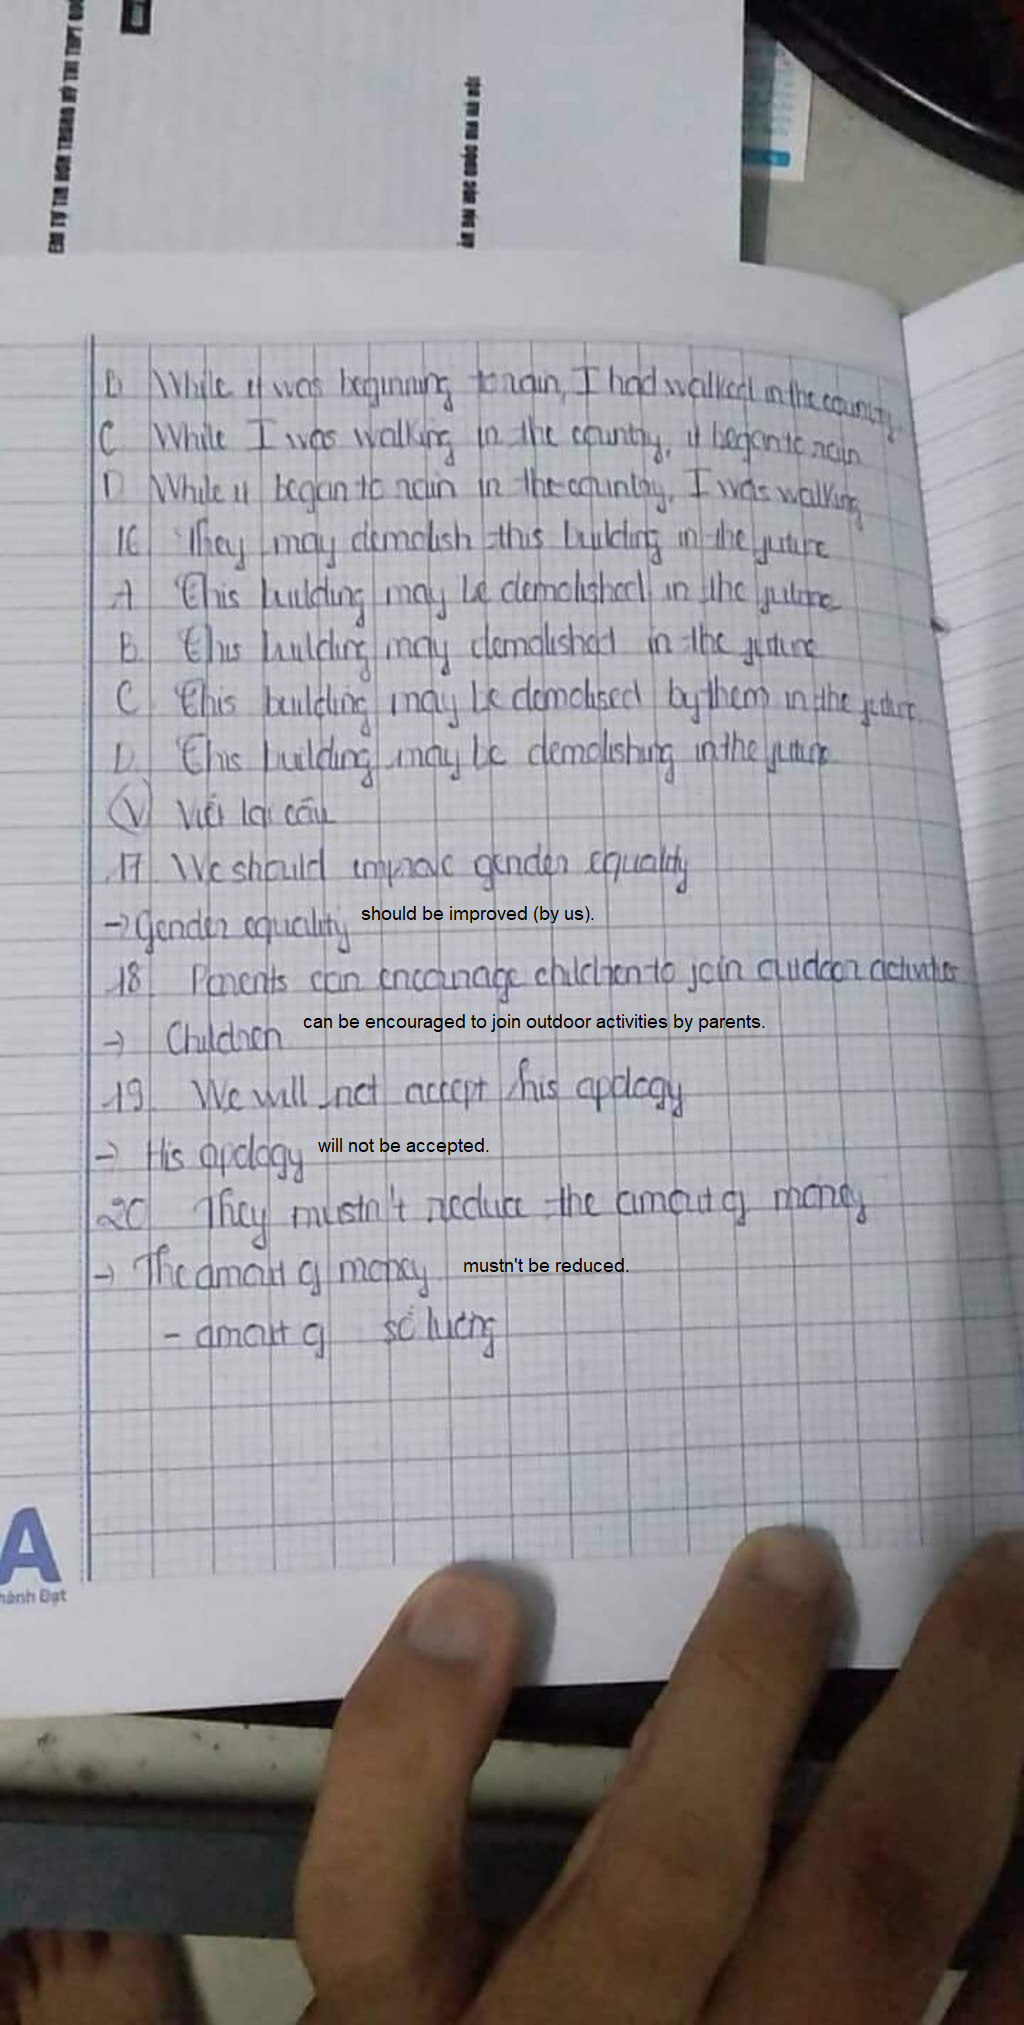 EM TỰ TIN HƠN TRONG KỲ THI THPT QUỐ
ÀN ĐẠI HỌC QUỐC GIA HÀ NỘI
B While it was beginning to rain, I had walked in the country
C While I was walking in the country, it began to rain
D While it began to rain in the country, I was walking
16 They may demolish this building in the future
A This building may be demolished in the future
B. This building may demolished in the future
C This building may be demolised by them in the future
D. This building may be demolishing in the future
V Viết lại câu
17. We should improve gender equality
→ Gender equality should be improved (by us).
18. Parents can encourage children to join outdoor activities
→ Children can be encouraged to join outdoor activities by parents.
19. We will not accept his apology
→ His apology will not be accepted.
20 They mustn't reduce the amout of money
→ The amout of money mustn't be reduced.
- amout of số lượng
A
hành Đạt